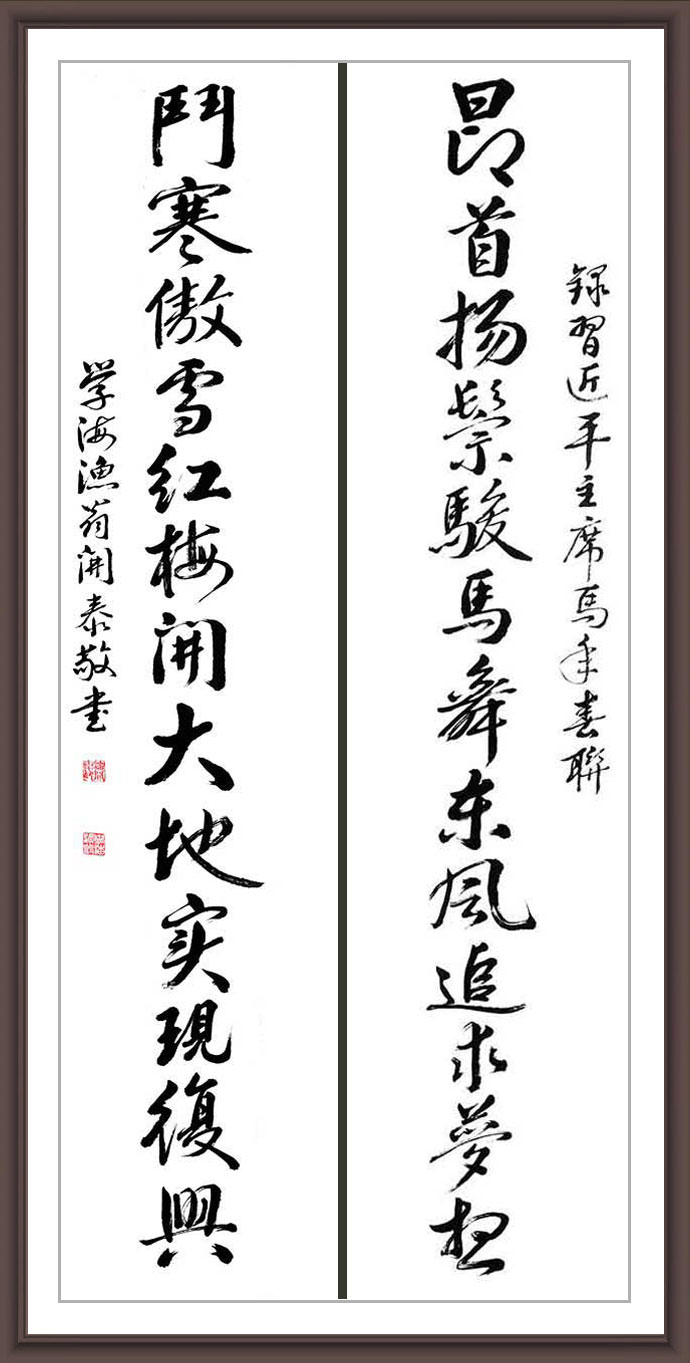 録習近平主席馬年春聯
昂首扬鬃駿馬舞东风追求夢想
鬥寒傲雪红梅開大地实現復興
学海漁翁開泰敬书